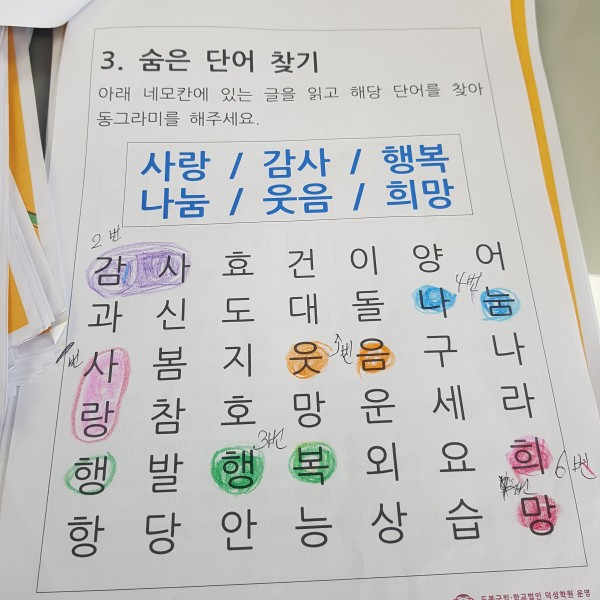 3. 숨은 단어 찾기
아래 네모칸에 있는 글을 읽고 해당 단어를 찾아
동그라미를 해주세요.
사랑 / 감사 / 행복
나눔 / 웃음 / 희망
2번
감 사 효 건 이 양 어
4번
과 신 도 대 돌 나 눔
1번 5번
사 봄 지 웃 음 구 나
랑 참 호 망 운 세 라
3번
행 발 행 복 외 요 희
6번
항 당 안 능 상 습 망
도봉구립·학교법인 덕성학원 운영